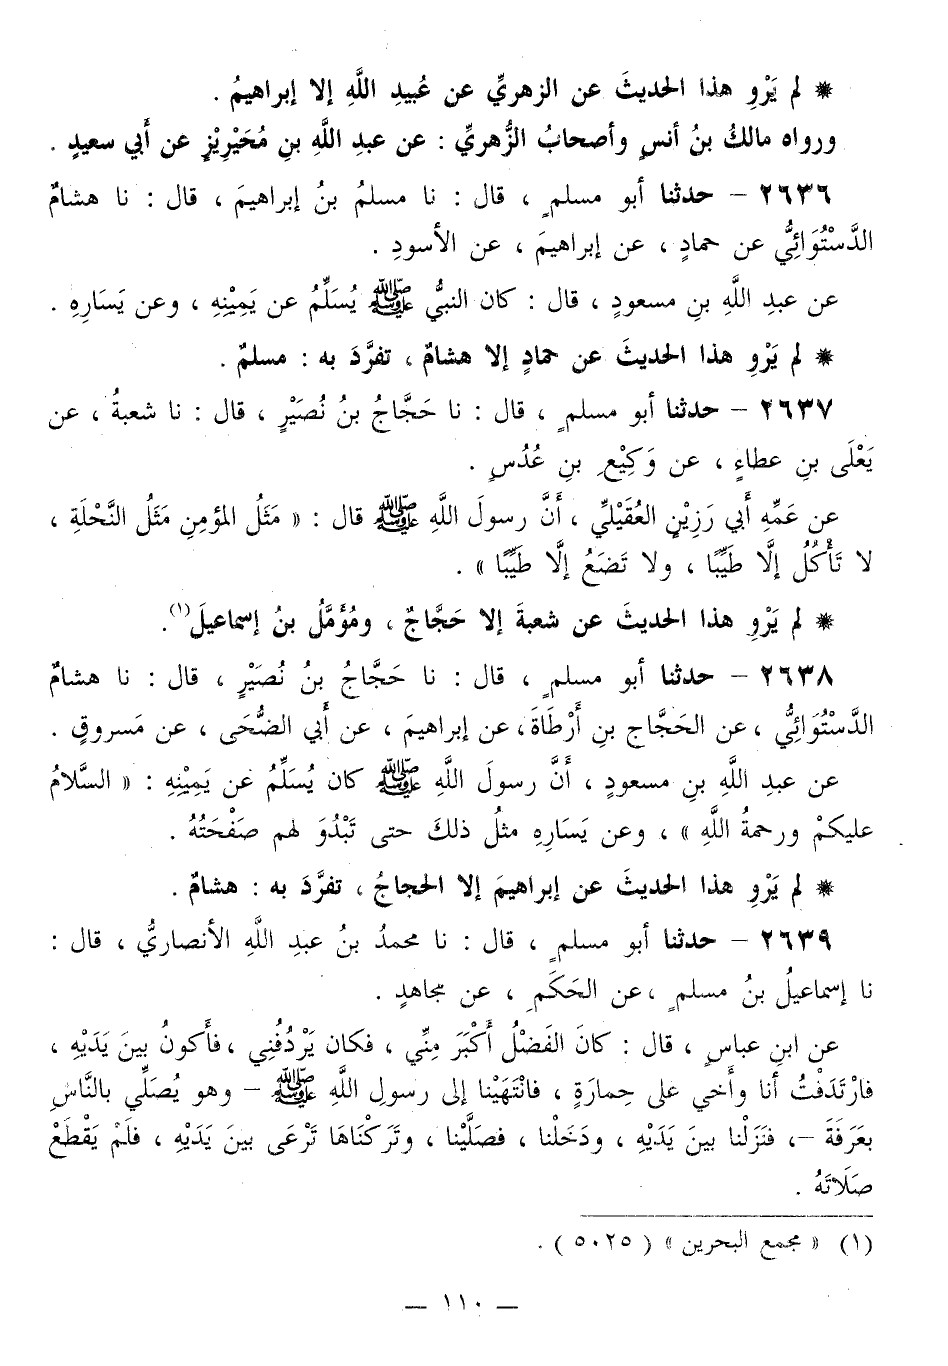 * لم يَرْوِ هذا الحديثَ عن الزهريِّ عن عُبيدِ اللَّهِ إلا إبراهيمُ .
ورواه مالكُ بنُ أنسٍ وأصحابُ الزُّهريِّ : عن عبدِ اللَّهِ بنِ مُحَيْرِيْزٍ عن أَبي سعيدٍ .
٢٦٣٦ – حدثنا أبو مسلمٍ ، قال : نا مسلمُ بنُ إبراهيمَ ، قال : نا هشامٌ
الدَّسْتُوَائِيُّ عن حمادٍ ، عن إبراهيمَ ، عن الأسودِ .
عن عبدِ اللَّهِ بنِ مسعودٍ ، قال : كان النبيُّ ﷺ يُسَلِّمُ عن يَمِيْنِهِ ، وعن يَسَارِهِ .
* لم يَرْوِ هذا الحديثَ عن حمادٍ إلا هشامٌ ، تفرَّدَ به : مسلمٌ .
٢٦٣٧ – حدثنا أبو مسلمٍ ، قال : نا حَجَّاجُ بنُ نُصَيْرٍ ، قال : نا شعبةُ ، عن
يَعْلَى بنِ عطاءٍ ، عن وَكِيْعِ بنِ عُدُسٍ .
عن عَمِّهِ أَبي رَزِيْنٍ العُقَيْليِّ ، أَنَّ رسولَ اللَّهِ ﷺ قال : « مَثَلُ المؤمنِ مَثَلُ النَّحْلَةِ ،
لا تَأْكُلُ إلَّا طَيِّبًا ، ولا تَضَعُ إلَّا طَيِّبًا » .
* لم يَرْوِ هذا الحديثَ عن شعبةَ إلا حَجَّاجٌ ، ومُؤَمَّلُ بنُ إسماعيلَ(١).
٢٦٣٨ – حدثنا أبو مسلمٍ ، قال : نا حَجَّاجُ بنُ نُصَيْرٍ ، قال : نا هشامٌ
الدَّسْتُوَائِيُّ ، عن الحَجَّاجِ بنِ أَرْطَاةَ، عن إبراهيمَ ، عن أَبي الضُّحَى ، عن مَسروقٍ .
عن عبدِ اللَّهِ بنِ مسعودٍ ، أَنَّ رسولَ اللَّهِ ﷺ كان يُسَلِّمُ عن يَمِيْنِهِ : « السَّلَامُ
عليكمْ ورحمةُ اللَّهِ » ، وعن يَسَارِهِ مثلُ ذلكَ حتى تَبْدُوَ لهم صَفْحَتُهُ .
* لم يَرْوِ هذا الحديثَ عن إبراهيمَ إلا الحجاجُ ، تفرَّدَ به : هشامٌ .
٢٦٣٩ – حدثنا أبو مسلمٍ ، قال : نا محمدُ بنُ عبدِ اللَّهِ الأنصاريُّ ، قال :
نا إسماعيلُ بنُ مسلمٍ ، عن الحَكَمِ ، عن مجاهدٍ .
عن ابنِ عباسٍ ، قال : كانَ الفَضْلُ أَكْبَرَ مِنِّي ، فكان يَرْدُفُنِي ، فأَكونُ بينَ يَدَيْهِ ،
فارْتَدَفْتُ أنا وأَخي على حِمارَةٍ ، فانْتَهَيْنا إلى رسولِ اللَّهِ ﷺ – وهو يُصَلِّي بالنَّاسِ
بعَرَفَةَ –، فنَزَلْنا بينَ يَدَيْهِ ، ودَخَلْنا ، فصَلَّيْنا ، وتَرَكْنَاهَا تَرْعَى بينَ يَدَيْهِ ، فلَمْ يَقْطَعْ
صَلَاتَهُ .
(١) « مجمع البحرين » ( ٥٠٢٥ ) .
– ١١٠ –